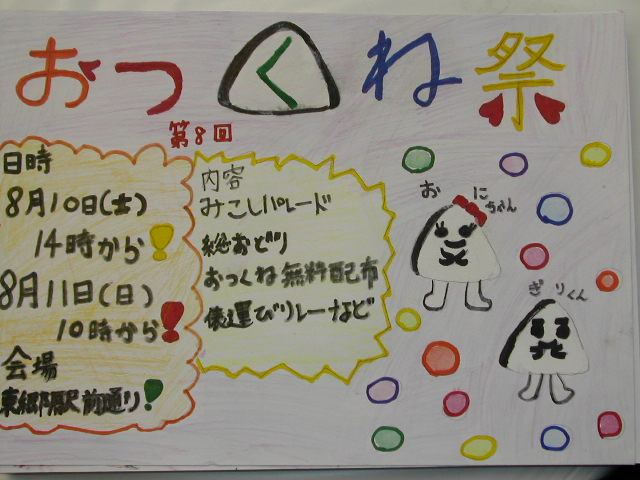 おっくね祭
第8回
日時
8月10日(土)
14時から!
8月11日(日)
10時から!
会場
東郷駅前通り!
内容
みこしパレード
総おどり
おっくね無料配布
俵運びリレーなど
おにちゃん
ぎりくん